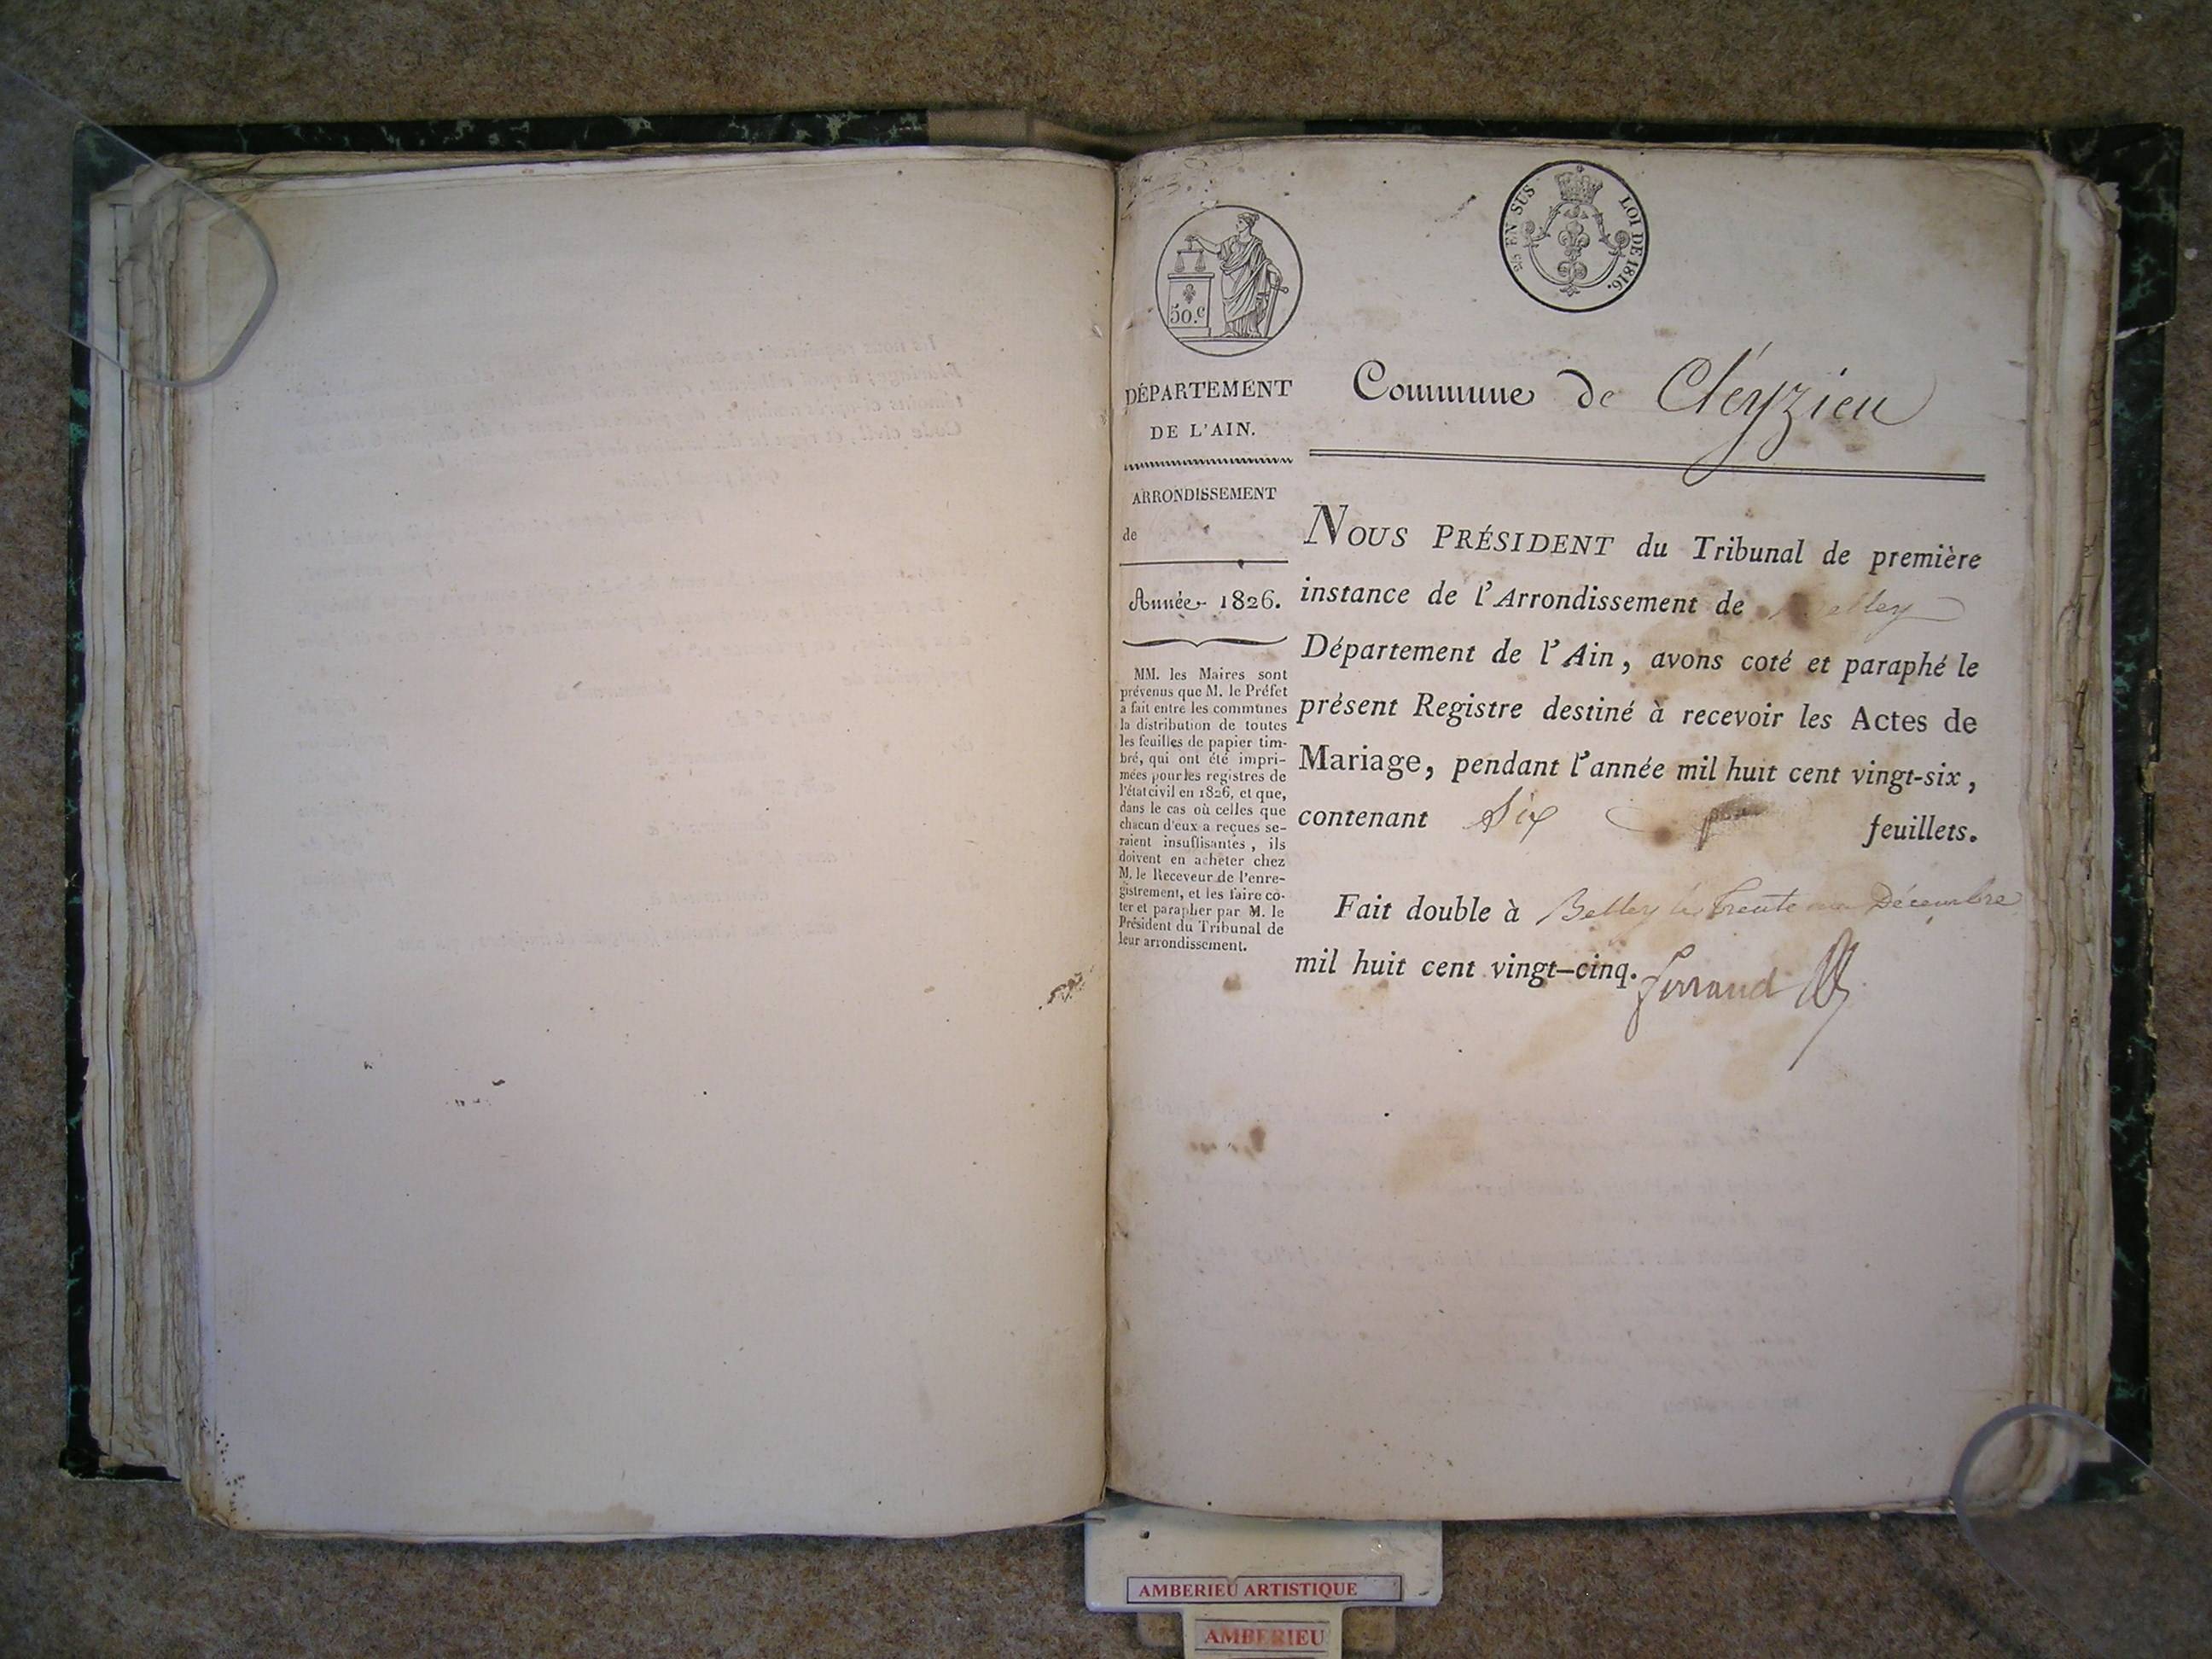 50.c
2/5 EN SUS LOI DE 1816.
DÉPARTEMENT
DE L'AIN.
ARRONDISSEMENT
de
Année 1826.
MM. les Maires sont
prévenus que M. le Préfet
a fait entre les communes
la distribution de toutes
les feuilles de papier tim-
bré, qui ont été impri-
mées pour les registres de
l'état civil en 1826, et que,
dans le cas où celles que
chacun d'eux a reçues se-
raient insuffisantes, ils
doivent en acheter chez
M. le Receveur de l'enre-
gistrement, et les faire co-
ter et parapher par M. le
Président du Tribunal de
leur arrondissement.
Commune de Cleyzieu
NOUS PRÉSIDENT du Tribunal de première
instance de l'Arrondissement de Belley
Département de l'Ain, avons coté et paraphé le
présent Registre destiné à recevoir les Actes de
Mariage, pendant l'année mil huit cent vingt-six,
contenant Six feuillets.
Fait double à Belley le trente un Décembre
mil huit cent vingt-cinq.
Ferrand
AMBERIEU ARTISTIQUE
AMBERIEU